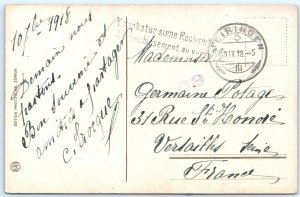 10 7bre 1918
Demain nous
partons.
Bon souvenir et
amitiés à partager
C. Rocque
Frankatur siehe Rückseite
MEIRINGEN
10.IX.18.-5
Mademoiselle
Germaine Potage
31 Rue St. Honoré
Versailles
France